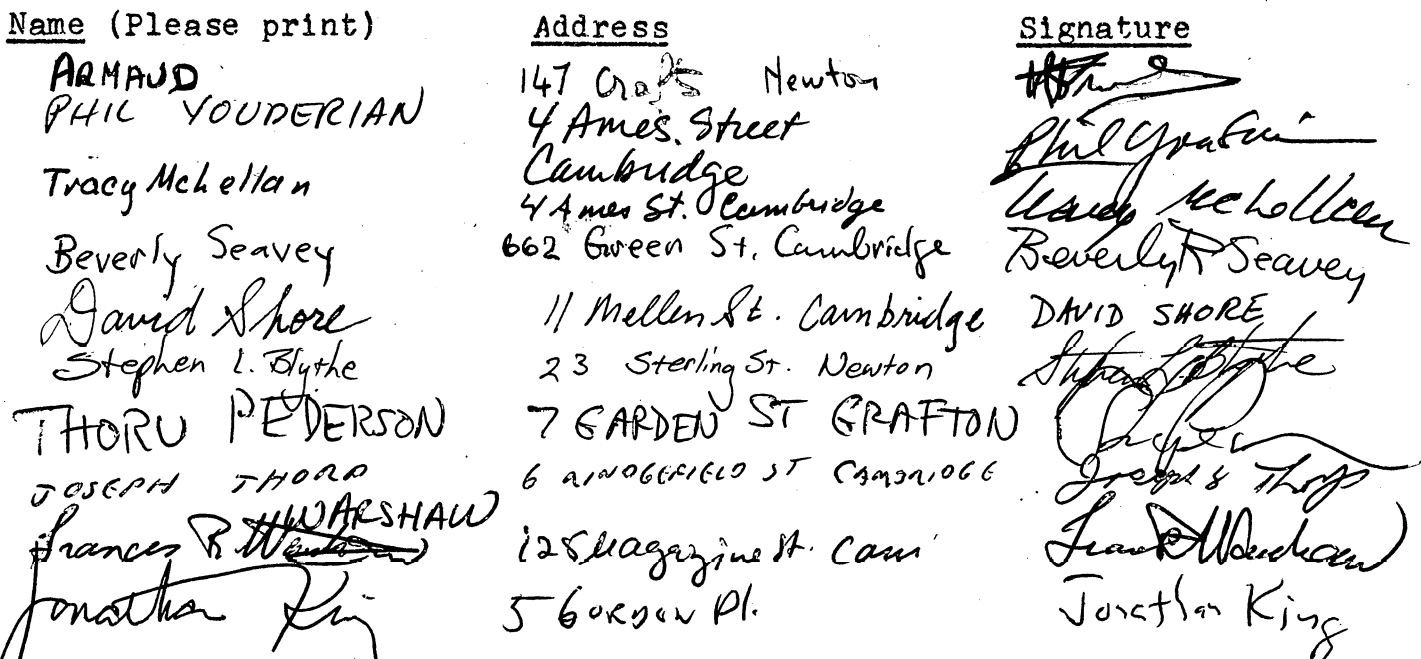 Name (Please print) Address Signature
ARMAUD 147 Crafts Newton
PHIL YOUDERIAN 4 Ames Street Phil
Cambridge
Tracy McLellan 4 Ames St. Cambridge Tracy McLellan
Beverly Seavey 662 Green St. Cambridge Beverly R Seavey
David Shore 11 Mellen St. Cambridge DAVID SHORE
Stephen L. Blythe 23 Sterling St. Newton Stephen L Blythe
THORU PEDERSON 7 GARDEN ST GRAFTON
JOSEPH THORP 6 RINDGEFIELD ST CAMBRIDGE Joseph S Thorp
WARSHAW
Frances R 128 Magazine St. Cam Warshaw
Jonathan King 5 GORDON Pl. Jonathan King